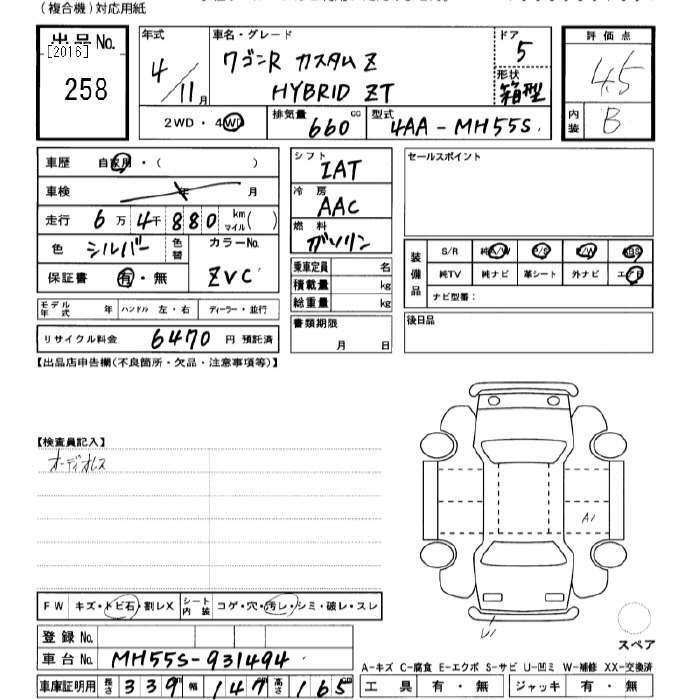 (複合機)対応用紙
出品No.
[2016]
258
年式
4/11月
車名・グレード
ワゴンR カスタムZ
HYBRID ZT
ドア
5
形状
箱型
評価点
4.5
内装
B
2WD・4WD
排気量
660cc
型式
4AA-MH55S
車歴 自家用・( )
車検 年 月
走行 6万4千880 km マイル( )
色 シルバー 色替
カラーNo.
ZVC
保証書 有・無
モデル年式 年 ハンドル 左・右 ディーラー・並行
リサイクル料金 6470円 預託済
シフト
IAT
冷房
AAC
燃料
ガソリン
乗車定員 名
積載量 kg
総重量 kg
書類期限
月 日
セールスポイント
装備品
S/R 純A/W P/S P/W ABS
純TV 純ナビ 革シート 外ナビ
ナビ型番:
後日品
【出品店申告欄(不良箇所・欠品・注意事項等)】
【検査員記入】
オーディオレス
A1
U1
スペア
FW キズ・トビ石・割レX
シート内装 コゲ・穴・汚レ・シミ・破レ・スレ
登録No.
車台No. MH55S-931494
車庫証明用 長さ 339 幅 147 高さ 165
A-キズ C-腐食 E-エクボ S-サビ U-凹ミ W-補修 XX-交換済
工具 有・無 ジャッキ 有・無